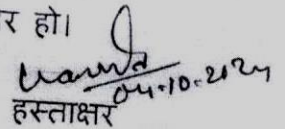 र हो।
04-10-2024
हस्ताक्षर